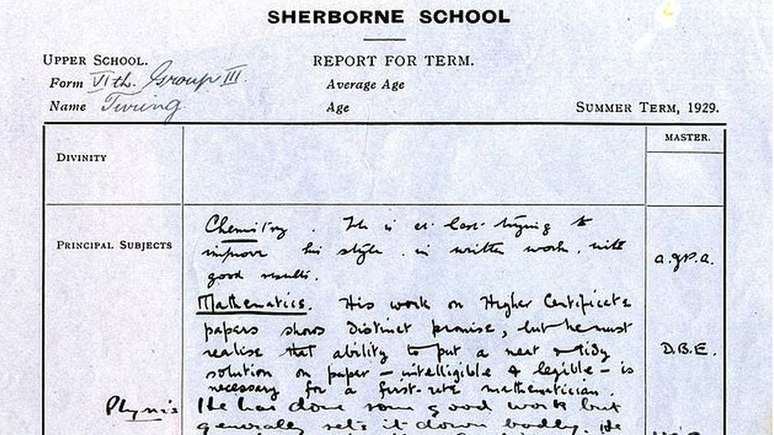 SHERBORNE SCHOOL
UPPER SCHOOL. REPORT FOR TERM.
Form VIth. Group III Average Age
Name Turing Age SUMMER TERM, 1929.
MASTER.
DIVINITY
PRINCIPAL SUBJECTS
Chemistry. He is at last trying to
improve his style in written work, with
good results. A.J.P.A.
Mathematics. His work on Higher Certificate
papers shows distinct promise, but he must
realise that ability to put a neat & tidy D.B.E.
solution on paper – intelligible & legible – is
necessary for a first-rate mathematician.
Physics He has done some good work but
generally sets it down badly. He